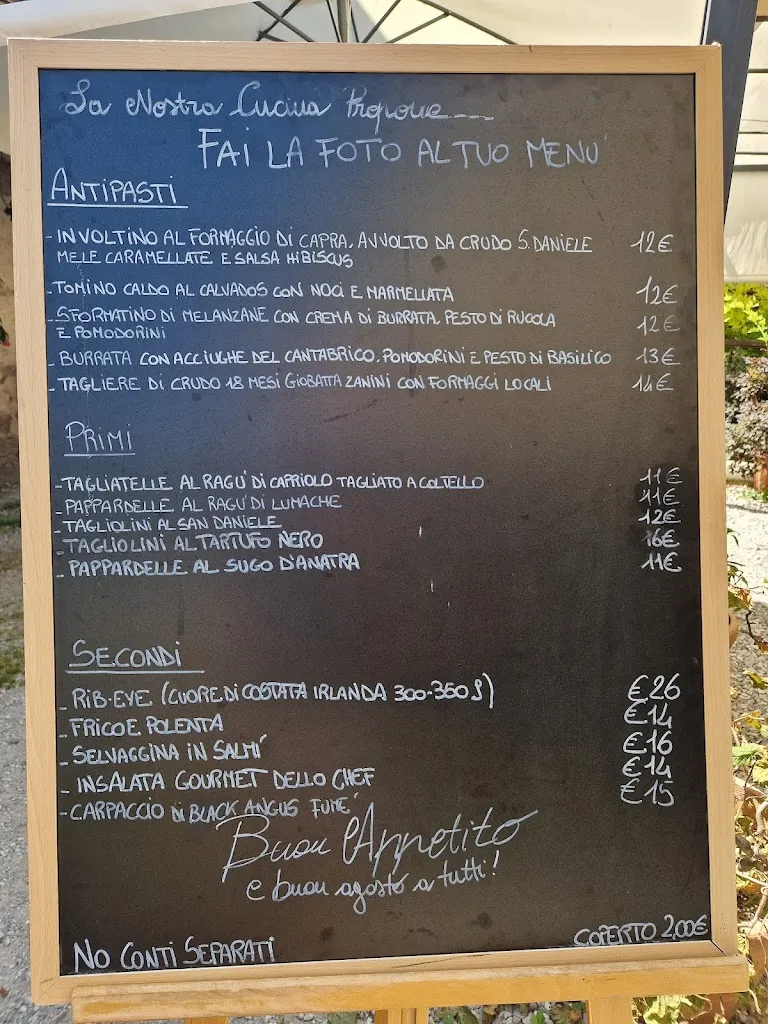 La Nostra Cucina Propone...
FAI LA FOTO AL TUO MENU'
ANTIPASTI
- INVOLTINO AL FORMAGGIO DI CAPRA, AVVOLTO DA CRUDO S. DANIELE 12€
MELE CARAMELLATE E SALSA HIBISCUS
- TOMINO CALDO AL CALVADOS CON NOCI E MARMELLATA 12€
- SFORMATINO DI MELANZANE CON CREMA DI BURRATA, PESTO DI RUCOLA 12€
E POMODORINI
- BURRATA CON ACCIUGHE DEL CANTABRICO, POMODORINI E PESTO DI BASILICO 13€
- TAGLIERE DI CRUDO 18 MESI GIOBATTA ZANINI CON FORMAGGI LOCALI 14€
PRIMI
- TAGLIATELLE AL RAGU' DI CAPRIOLO TAGLIATO A COLTELLO 11€
- PAPPARDELLE AL RAGU' DI LUMACHE 11€
- TAGLIOLINI AL SAN DANIELE 12€
- TAGLIOLINI AL TARTUFO NERO 16€
- PAPPARDELLE AL SUGO D'ANATRA 11€
SECONDI
- RIB-EYE (CUORE DI COSTATA IRLANDA 300-350 g) €26
- FRICO E POLENTA €14
- SELVAGGINA IN SALMI' €16
- INSALATA GOURMET DELLO CHEF €14
- CARPACCIO DI BLACK ANGUS FUME' €15
Buon Appetito
e buon agosto a tutti!
NO CONTI SEPARATI
COPERTO 2,00€